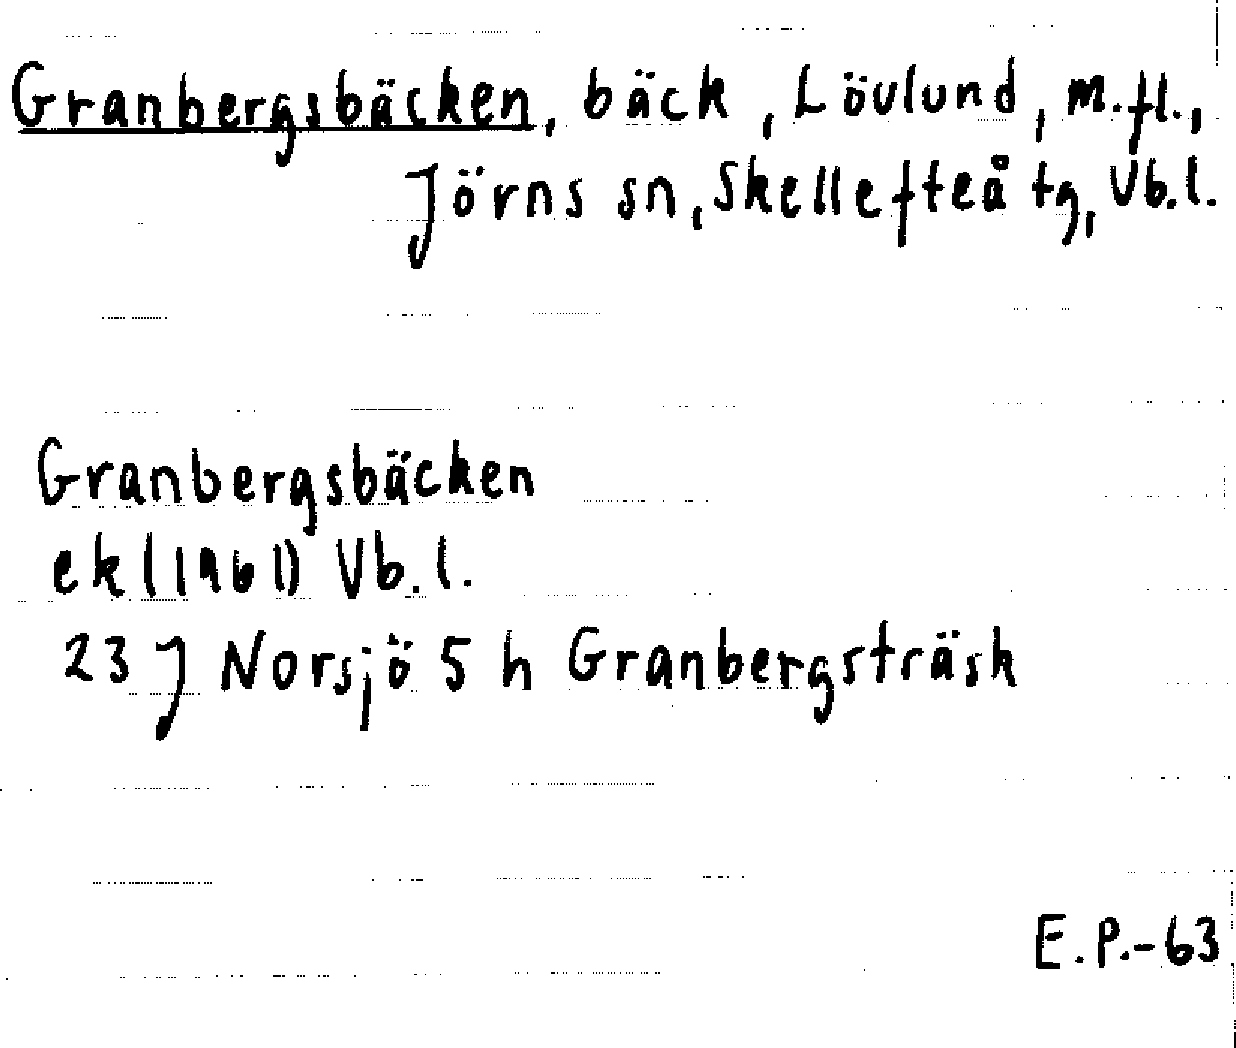 Granbergsbäcken, bäck, Lövlund, m.fl.,
Jörns sn, Skellefteå tg, Vb.l.
Granbergsbäcken
ek (1961) Vb.l.
23 J Norsjö 5 h Granbergsträsk
E.P.-63